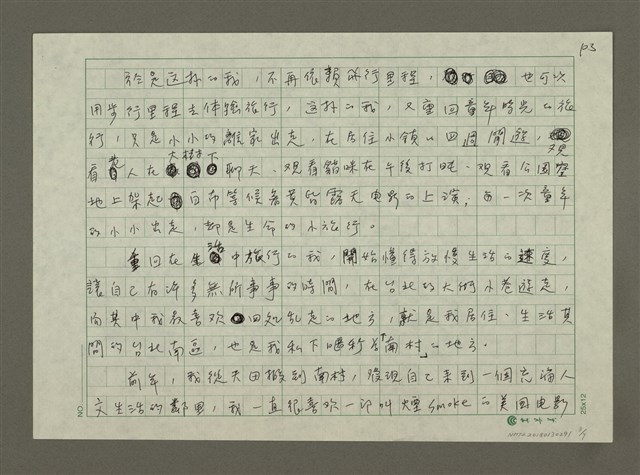 P3
於是這樣的我，不再依賴飛行里程，也可以
用步行里程去体驗旅行，這樣的我，又重回童年時光的旅
行，只是小小的離家出走，在居住小鎮的四週閒遊，
觀看老人在大樹下聊天、观看貓咪在午後打盹、观看公園空
地上架起白布等候著黃昏露天电影的上演；每一次童年
的小小出走，都是生命的小旅行。
重回在生活中旅行的我，開始懂得放慢生活的速度，
讓自己有許多無所事事的時間，在台北的大街小巷遊走，
而其中我最喜欢四处乱走的地方，就是我居住、生活其
間的台北南區，也是我私下暱称為「南村」的地方。
前年，我從天母搬到南村，發現自己来到一個充滿人
文生活的鄰里，我一直很喜欢一部叫煙smoke的美國电影
NO.
25x12